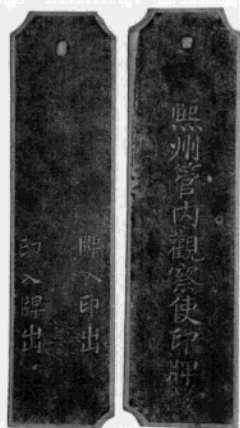 熙州管內觀察使印牌
牌入印出
印入牌出